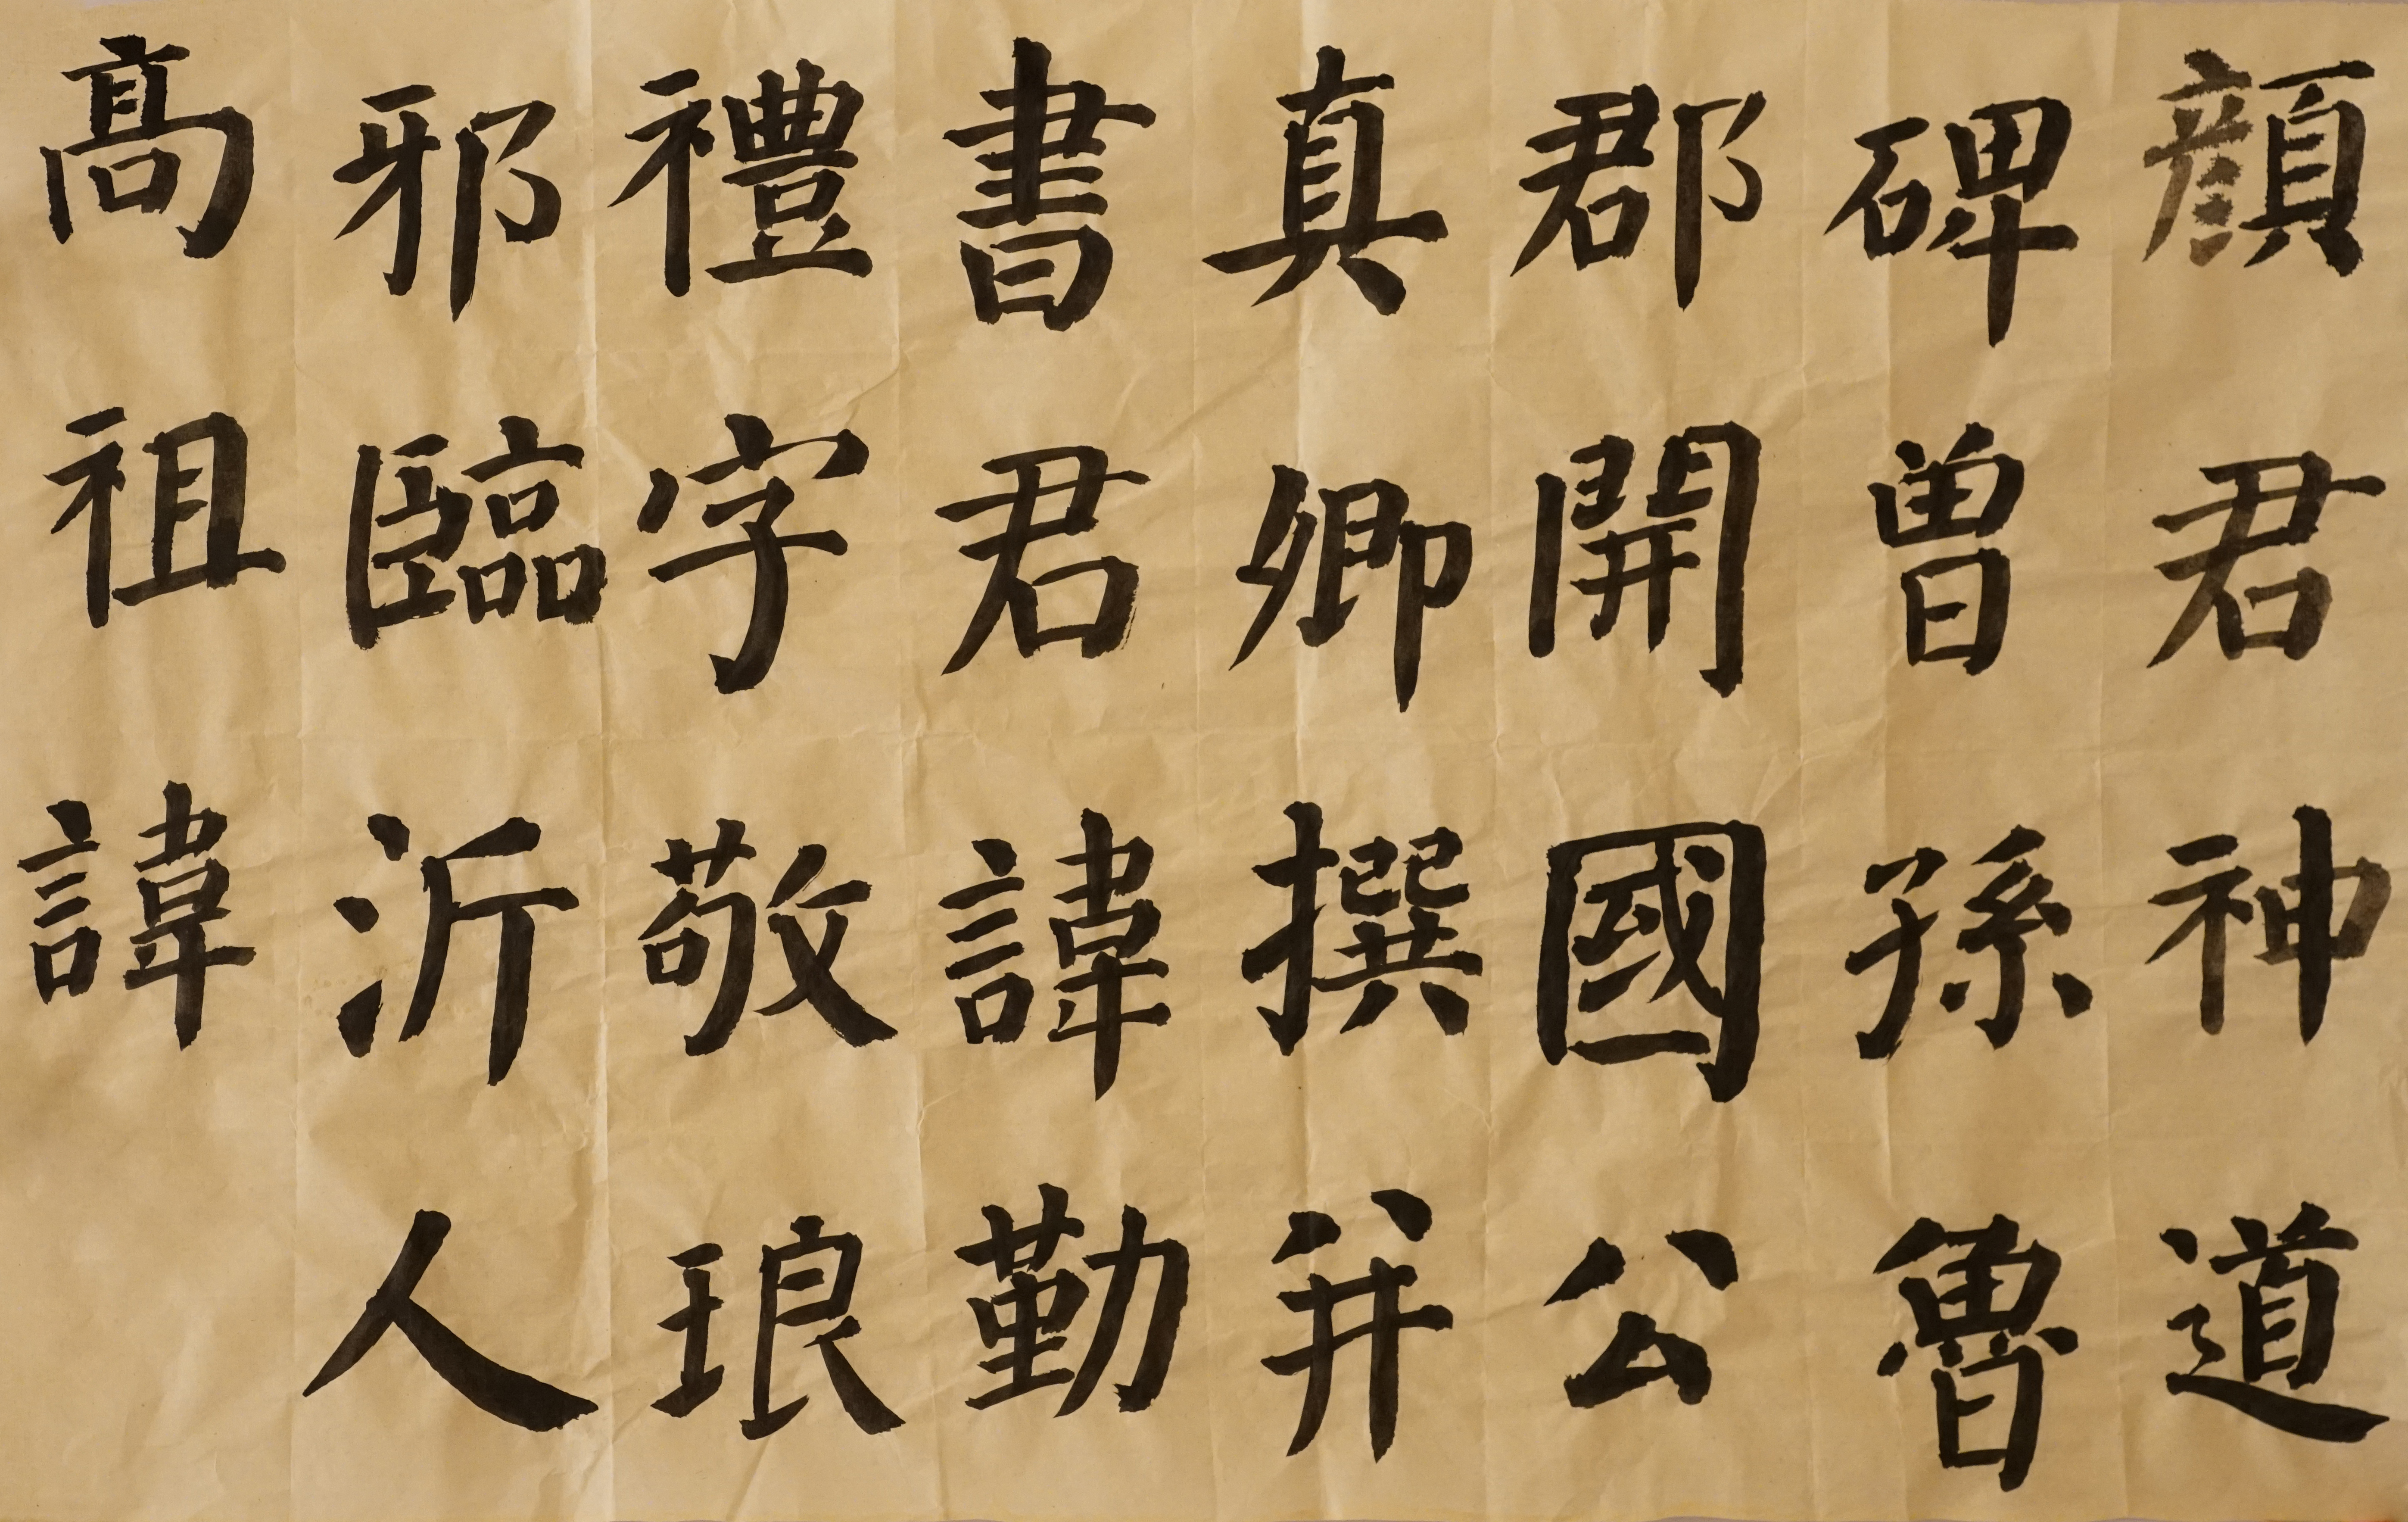 顏君神道
碑曾孫魯
郡開國公
真卿撰并
書君諱勤
禮字敬琅
邪臨沂人
高祖諱